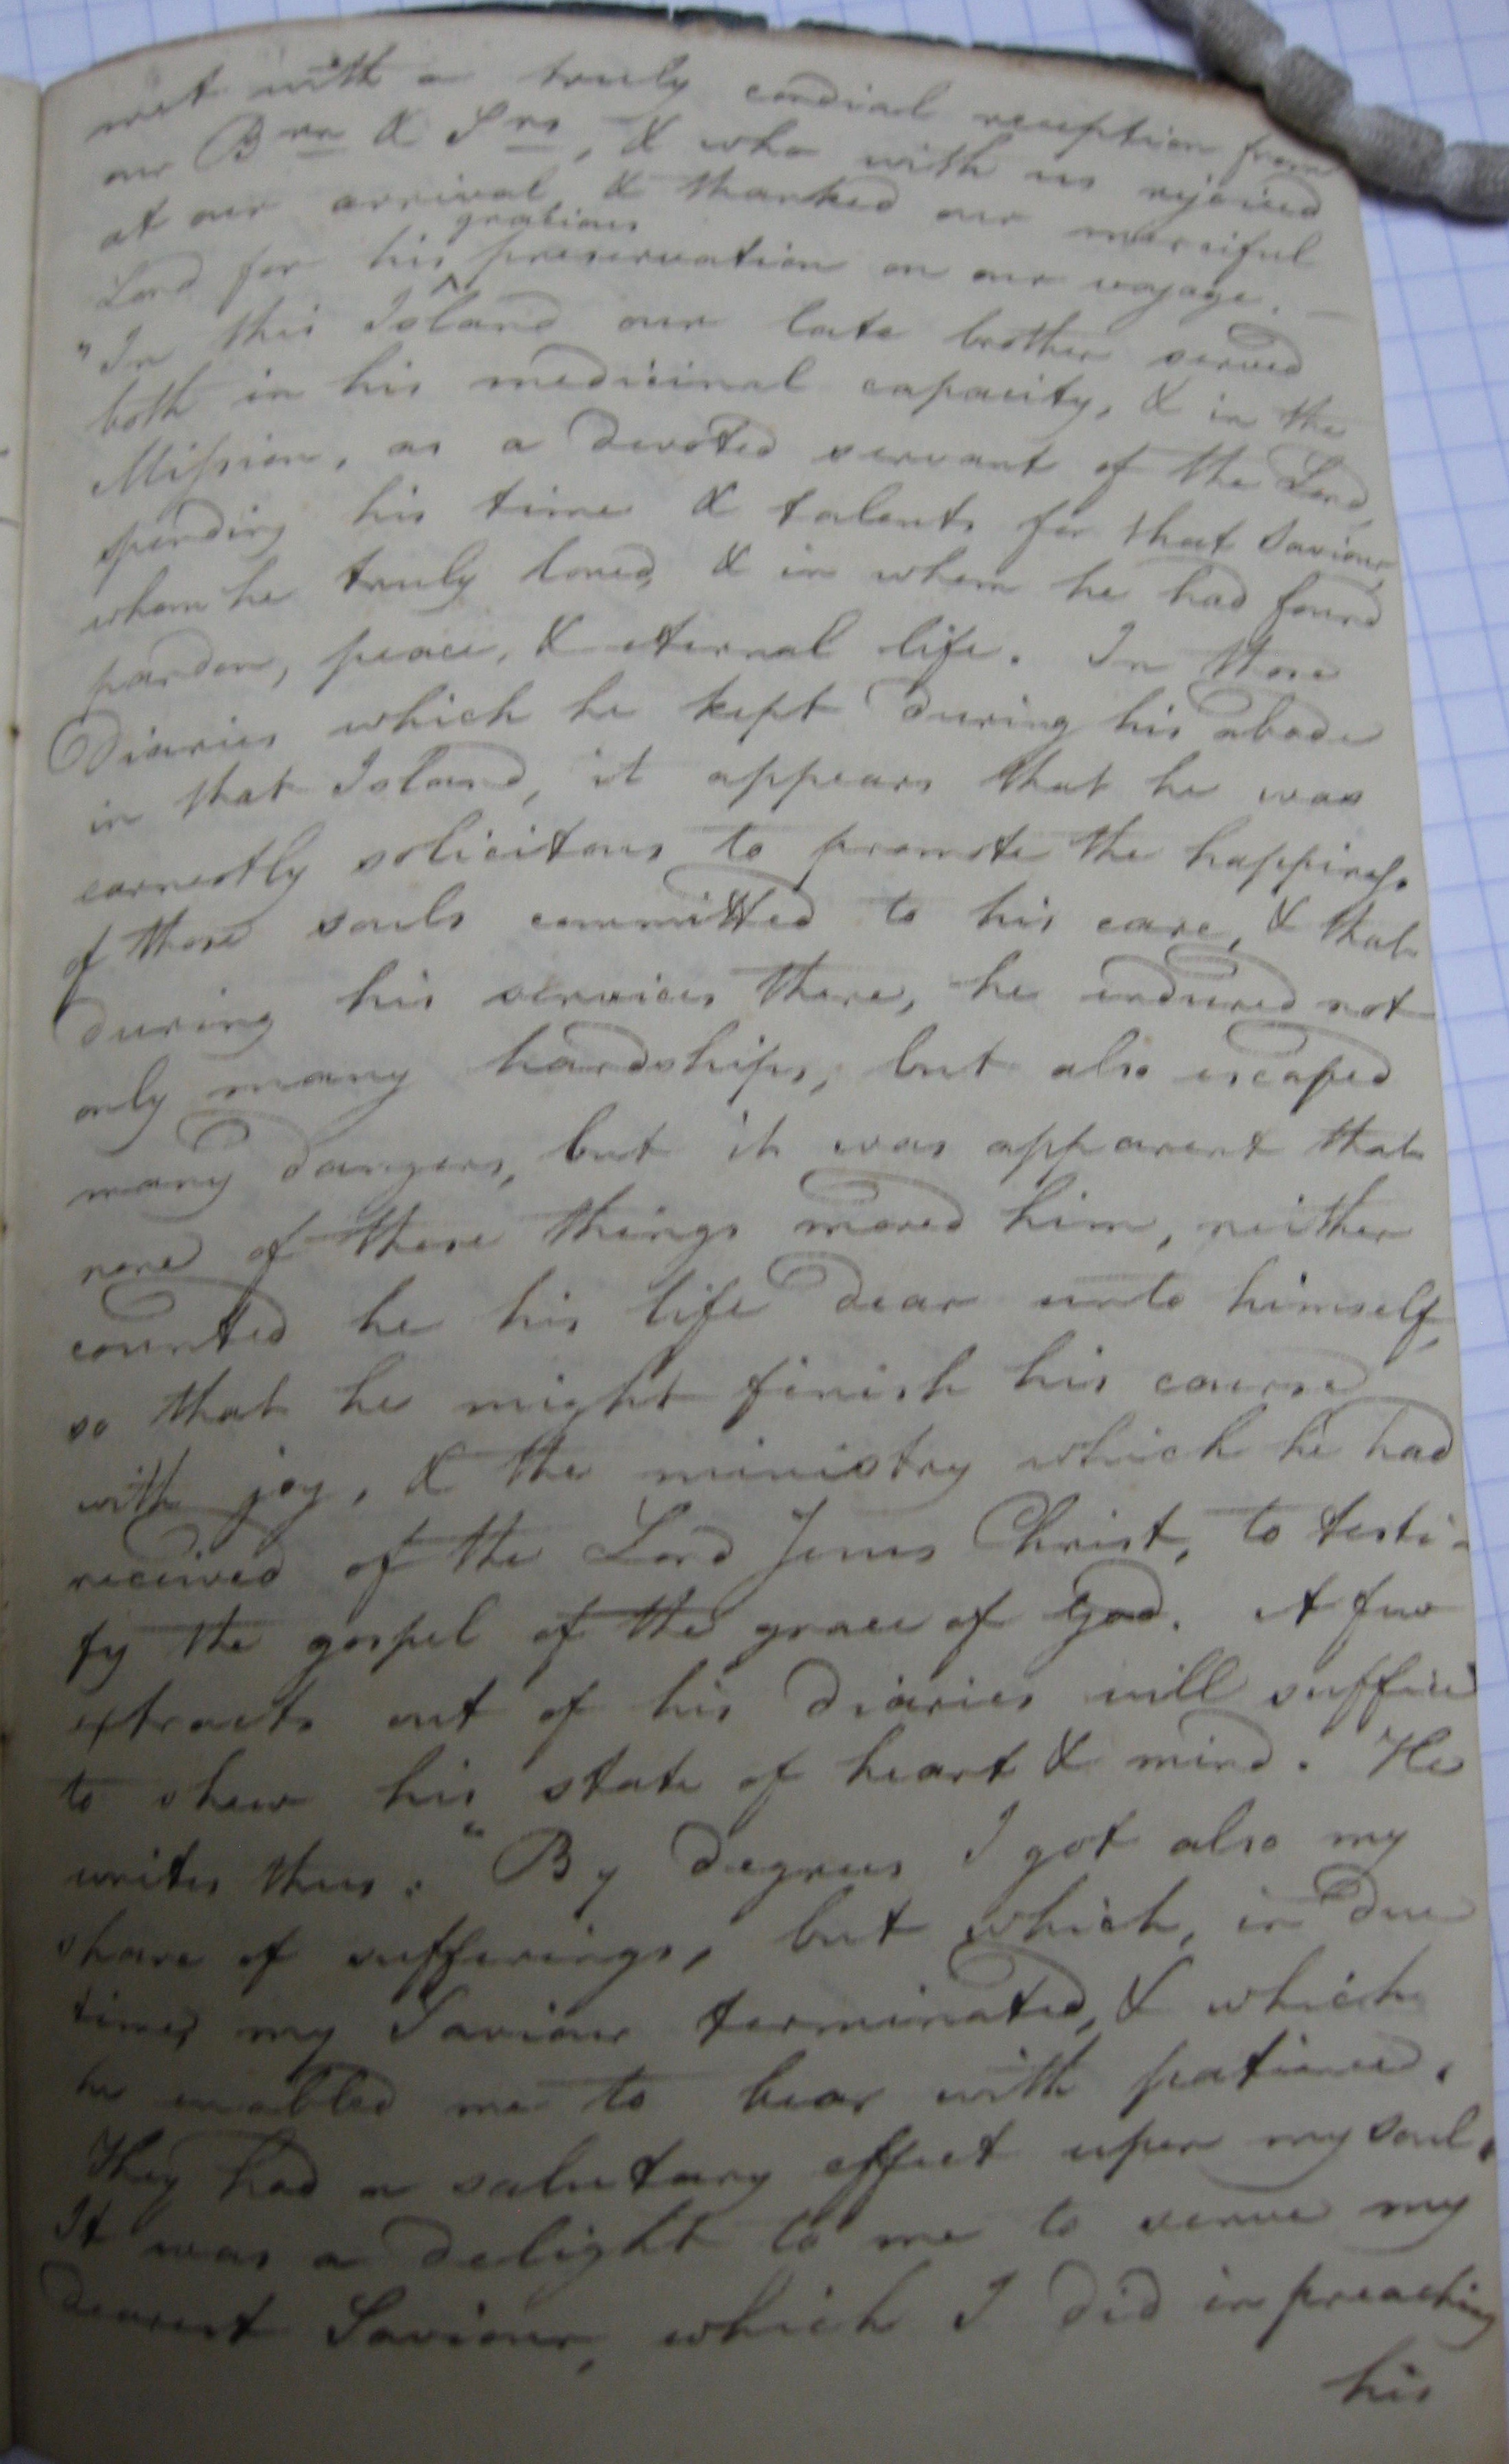 met with a truly cordial reception from
our Brn & Srs, & who with us rejoiced
at our arrival, & thanked our merciful
Lord for his gracious preservation on our voyage. —
"In this Island our late brother served
both in his medicinal capacity, & in the
Mission, as a devoted servant of the Lord,
spending his time & talents for that Saviour,
whom he truly loved, & in whom he had found
pardon, peace, & eternal life. In those
Diaries which he kept during his abode
in that Island, it appears that he was
earnestly solicitous to promote the happiness
of those souls committed to his care, & that
during his services there, he endured not
only many hardships, but also escaped
many dangers, but it was apparent that
none of these things moved him, neither
counted he his life dear unto himself,
so that he might finish his course
with joy, & the ministry which he had
received of the Lord Jesus Christ, to testi-
fy the gospel of the grace of God. A few
extracts out of his diaries will suffice
to shew his state of heart & mind. He
writes thus: "By degrees I got also my
share of sufferings, but which, in due
time, my Saviour terminated, & which
he enabled me to bear with patience.
They had a salutary effect upon my soul.
It was a delight to me to serve my
dearest Saviour, which I did in preaching
his